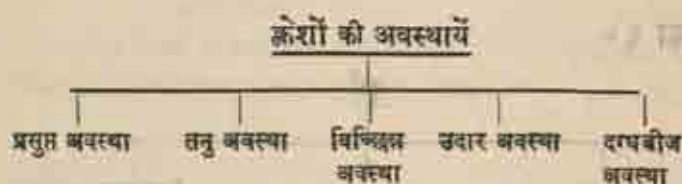 क्लेशों की अवस्थायें
प्रसुप्त अवस्था तनु अवस्था विच्छिन्न उदार अवस्था दग्धबीज
अवस्था अवस्था